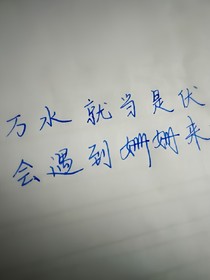 万水 就当是伏
会遇到姗姗来